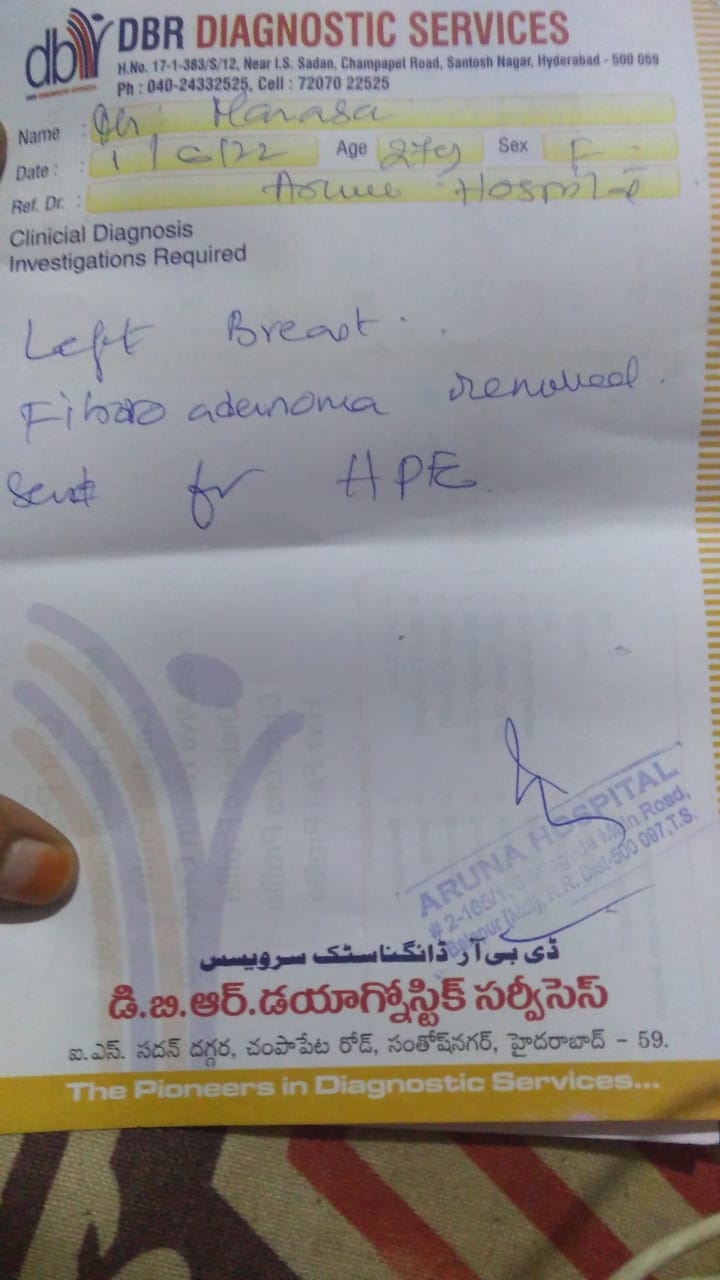 dbr DBR DIAGNOSTIC SERVICES
DBR DIAGNOSTIC SERVICES
H.No. 17-1-383/S/12, Near I.S. Sadan, Champapet Road, Santosh Nagar, Hyderabad - 500 059
Ph : 040-24332525, Cell : 72070 22525
Name : Manasa
Date : 1/6/22 Age 27y Sex F
Ref. Dr. : Hospital
Clinicial Diagnosis
Investigations Required
Left Breast.
Fibro adenoma removed.
Sent for HPE.
ARUNA HOSPITAL
# 2-165/1, Main Road,
Balapur [Mdl], R.R. Dist-500 097,T.S.
ڈی بی آر ڈانگناسٹک سرویسس
డి.బి.ఆర్.డయాగ్నోస్టిక్ సర్వీసెస్
ఐ.ఎస్. సదన్ దగ్గర, చంపాపేట రోడ్, సంతోష్‌నగర్, హైదరాబాద్ - 59.
The Pioneers in Diagnostic Services...